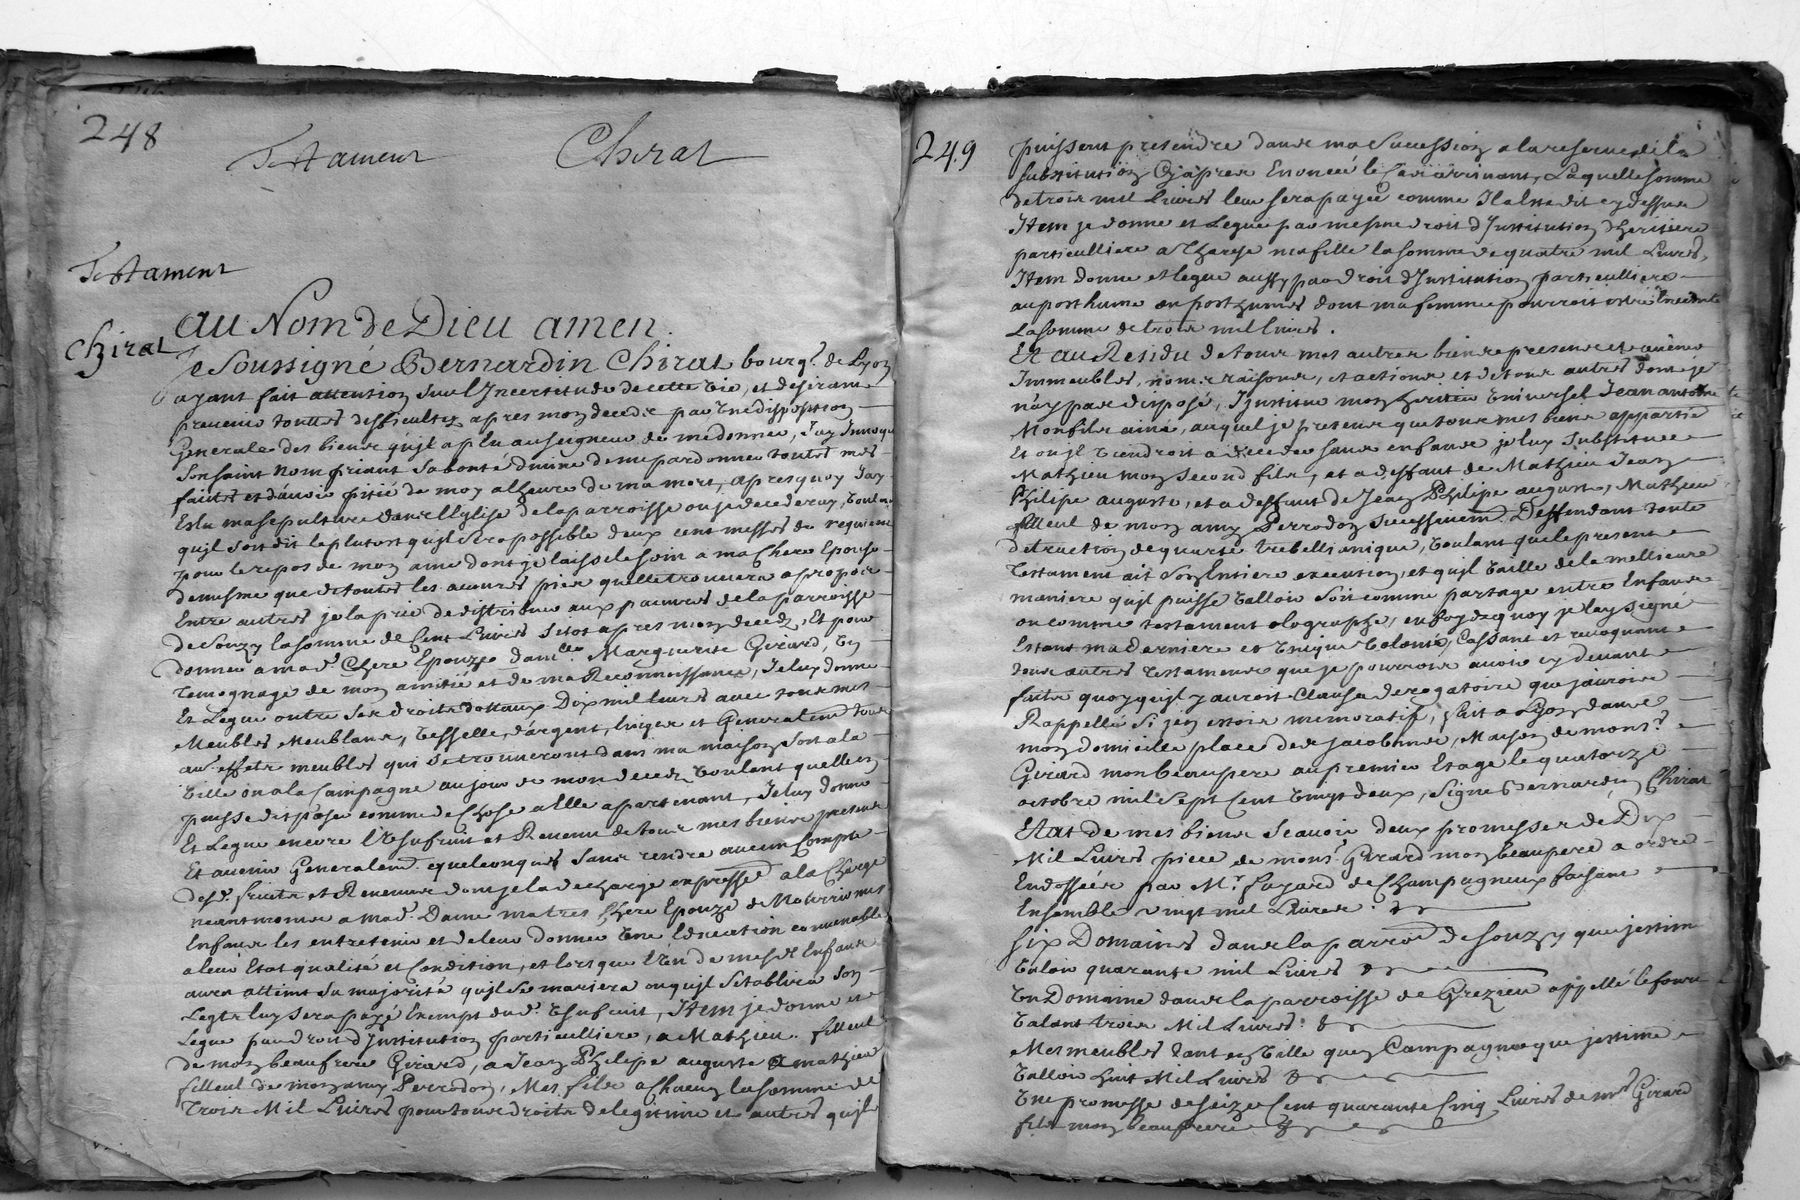 248
Testament Chirat
Testament
Chirat
Au Nom de Dieu amen.
Je Soussigné Bernardin Chirat bourg.s de Lyon
ayant fait attention sur l'Incertitude de cette vie, et desirant
prevenir touttes difficultez apres mon decedz par Une disposition
Generale des biens qu'jl a plu au seigneur de me donner, J'ay Invoqué
son saint Nom priant sa bonté divine de me pardonner toutes mes
fautes et d'avoir pitié de moy a lheure de ma mort, apres quoy J'ay
Eslu ma sepulture dans l'Eglise de la parroisse ou je decederay, Voulant
qu'jl soit dit le plutost qu'jl sera possible deux cent messes de requiem
pour le repos de mon ame dont je laisse le soin a ma Chere Epouse
de mesme que de toutes les aeuvres pies quelle trouvera a propos
Entre autres je la prie de distribuer aux pauvres de la parroisse
de Souzy la somme de Cent Livres sitot apres mon decedz, Et pour
donner a mad.e Chere Epouze dam.lle Marguerite Girard, Un
temognage de mon amitié et de ma Reconnoissance, Je luy donne
Et Legue outre ses droits dottaux Dix mil livres avec tous mes
Meubles Meublans, Vesselle, d'argent, linges et Generalem.t tous
au.s effets meubles qui se trouveront dans ma maison soit a la
Ville ou a la Campagne au jour de mon decedz Voulant quelle en
puisse disposer comme de Chose a Elle apartenant, Je luy donne
Et Legue encore l'Usufruit et Revenu de tous mes biens presens
Et avenir Generalem.t quelconques sans rendre aucun Compte
desd. fruits et Revenus dont je la decharge expressem.t a la Charge
neantmoins a mad.e Dame ma tres Chere Epouze de Nourrir mes
Enfans les entretenir et de leur donner Une Education convenable
a leur Etat qualité et Condition, et lors que l'Un de mesd. Enfans
aura atteint sa majorité qu'jl se mariera ou qu'jl s'etablira son
Legt luy sera payé Exempt dud. Usufruit, Item je donne et
Legue par droit d'Institution particulliere, a Mathieu filleul
de mon beaufrere Girard, a Jean Philipe auguste & mathieu
filleul de mon amy Perrodon, Mes fils a Chacun la somme de
Trois Mil Livres pour tous droits de legitime et autres qu'jls
249
puissent pretendre dans ma Succession a la reserve de la
substitution Cy apres Enoncée le Cas arrivant, Laquelle somme
de trois mil Livres leur sera payée comme Il a este dit cy dessus
Item je donne et Legue par mesme droit d'Institution d'heritiere
particulliere a Therese ma fille la somme de quatre mil Livres,
Item donne et legue aussy par droit d'Institution particulliere
au posthume ou posthumes dont ma femme pourroit estre Enceinte
La somme de trois mil livres.
Et au Residu de tous mes autres biens presens et avenir
Immeubles, noms raisons, et actions et de tous autres dont je
n'ay pas disposé, J'Institue mon heritier Universel Jean antoine
Mon fils ainé, auquel je pretens que tous mes biens appartie
Et ou jl viendroit a deceder sans enfans je luy Substitue
Mathieu mon second fils, et a deffaut de Mathieu Jean
Philipe auguste, et a deffaut de Jean Philipe auguste, Mathieu
filleul de mon amy Perrodon Successivem.t Deffendant toute
detraction de quarte trebellianique, Voulant que le present
testament ait son Entiere execution, et qu'jl vaille de la meilleure
maniere qu'jl puisse valloir soit comme partage entre Enfans
ou comme testament olographe, en foy de quoy je l'ay signé
Estant ma derniere et Unique Volonté, Cassant et revoquant
tous autres testamens que je pourrois avoir cy devant
faits quoy qu'jl y auroit Clause derogatoire que j'aurois
Rappellé si j'en estois memoratif, fait a Lyon dans
mon domicille place des Jacobins, Maison de mons.r
Girard mon beaupere au premier Etage le quatorze
octobre mil sept Cent Vingt deux, Signé Bernardin Chirat
Etat de mes biens Scavoir deux promesses de Dix
Mil Livres piece de mons.r Girard mon beaupere a ordre
Endossées par M.r Fayard de Champagneux faisant
Ensemble vingt mil Livres.
Six Domaines dans la parroisse de Souzy que j'estime
Valoir quarante mil Livres
Un Domaine dans la parroisse de Grezieu appellé le four
Valant trois Mil Livres.
Mes meubles tant en Ville qu'en Campagne que j'estime
Valloir huit Mil Livres
Une promesse de seize Cent quarante Cinq Livres de m.r Girard
fils mon beaufrere